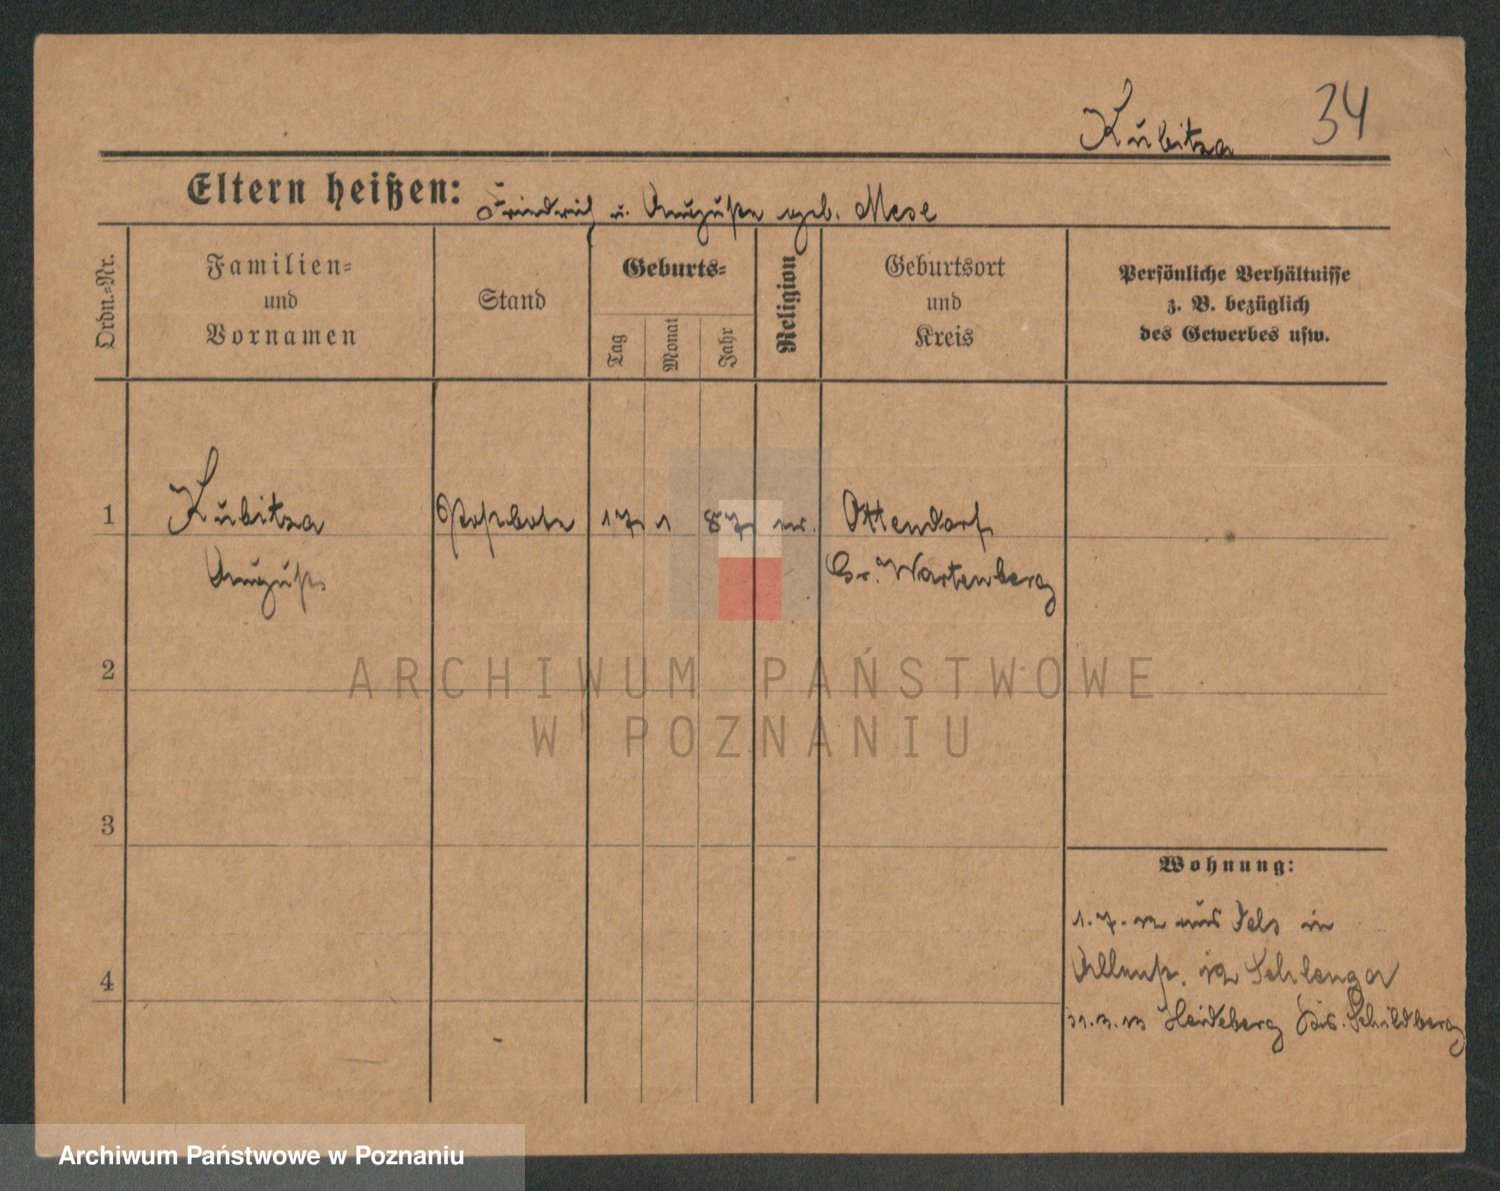 Kubitza 34
Eltern heißen: Friedrich u. Auguste geb. Mese
Ordn.-Nr.
Familien-
und
Vornamen
Stand
Geburts-
Tag
Monat
Jahr
Religion
Geburtsort
und
Kreis
Persönliche Verhältnisse
z. B. bezüglich
des Gewerbes usw.
1 Kubitza Postbote 17 1 87 Ottendorf
August Gr. Wartenberg
2
3
4
Wohnung:
1.7.12 aus in
31.3.13 Heideberg Krs. Schildberg
ARCHIWUM PAŃSTWOWE
W POZNANIU
Archiwum Państwowe w Poznaniu